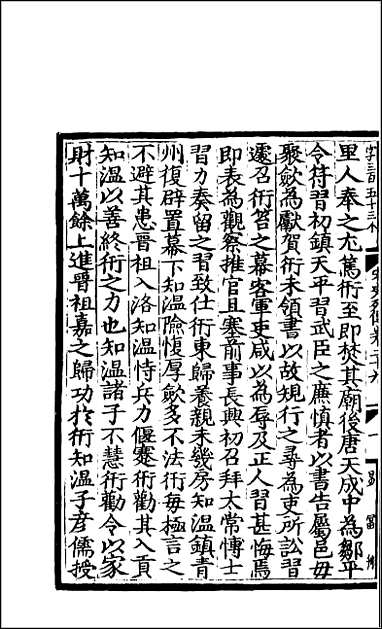 里人奉之尤篤衎至即焚其廟後唐天成中為鄒平
令符習初鎮天平習武臣之廉慎者以書告屬邑毋
聚歛為獻賀衎未領書以故規行之尋為吏所訟習
遽召衎笞之幕客軍吏咸以為辱及正人習甚悔焉
即表為觀察推官且塞前事長興初召拜太常博士
習力奏留之習致仕衎東歸養親未幾房知溫鎮青
州復辟置幕下知溫險愎厚歛多不法衎每極言之
不避其患晉祖入洛知溫恃兵力偃蹇衎勸其入貢
知溫以善終衎之力也知溫諸子不慧衎勸令以家
財十萬餘上進晉祖嘉之歸功於衎知溫子彥儒授